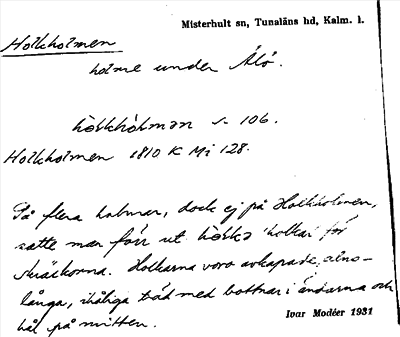 Misterhult sn, Tunaläns hd, Kalm. l.
Holkholmen
holme under Älö.
hòlkhòlmən S. 106.
Holkholmen 1810 K Mi 128.
På flera holmar, dock ej på Holkholmen,
satte man förr ut holkar för
skräckorna. Holkarna voro avkapade, alns-
långa, ihåliga träd med bottnar i ändarna och
hål på mitten.
Ivar Modéer 1931